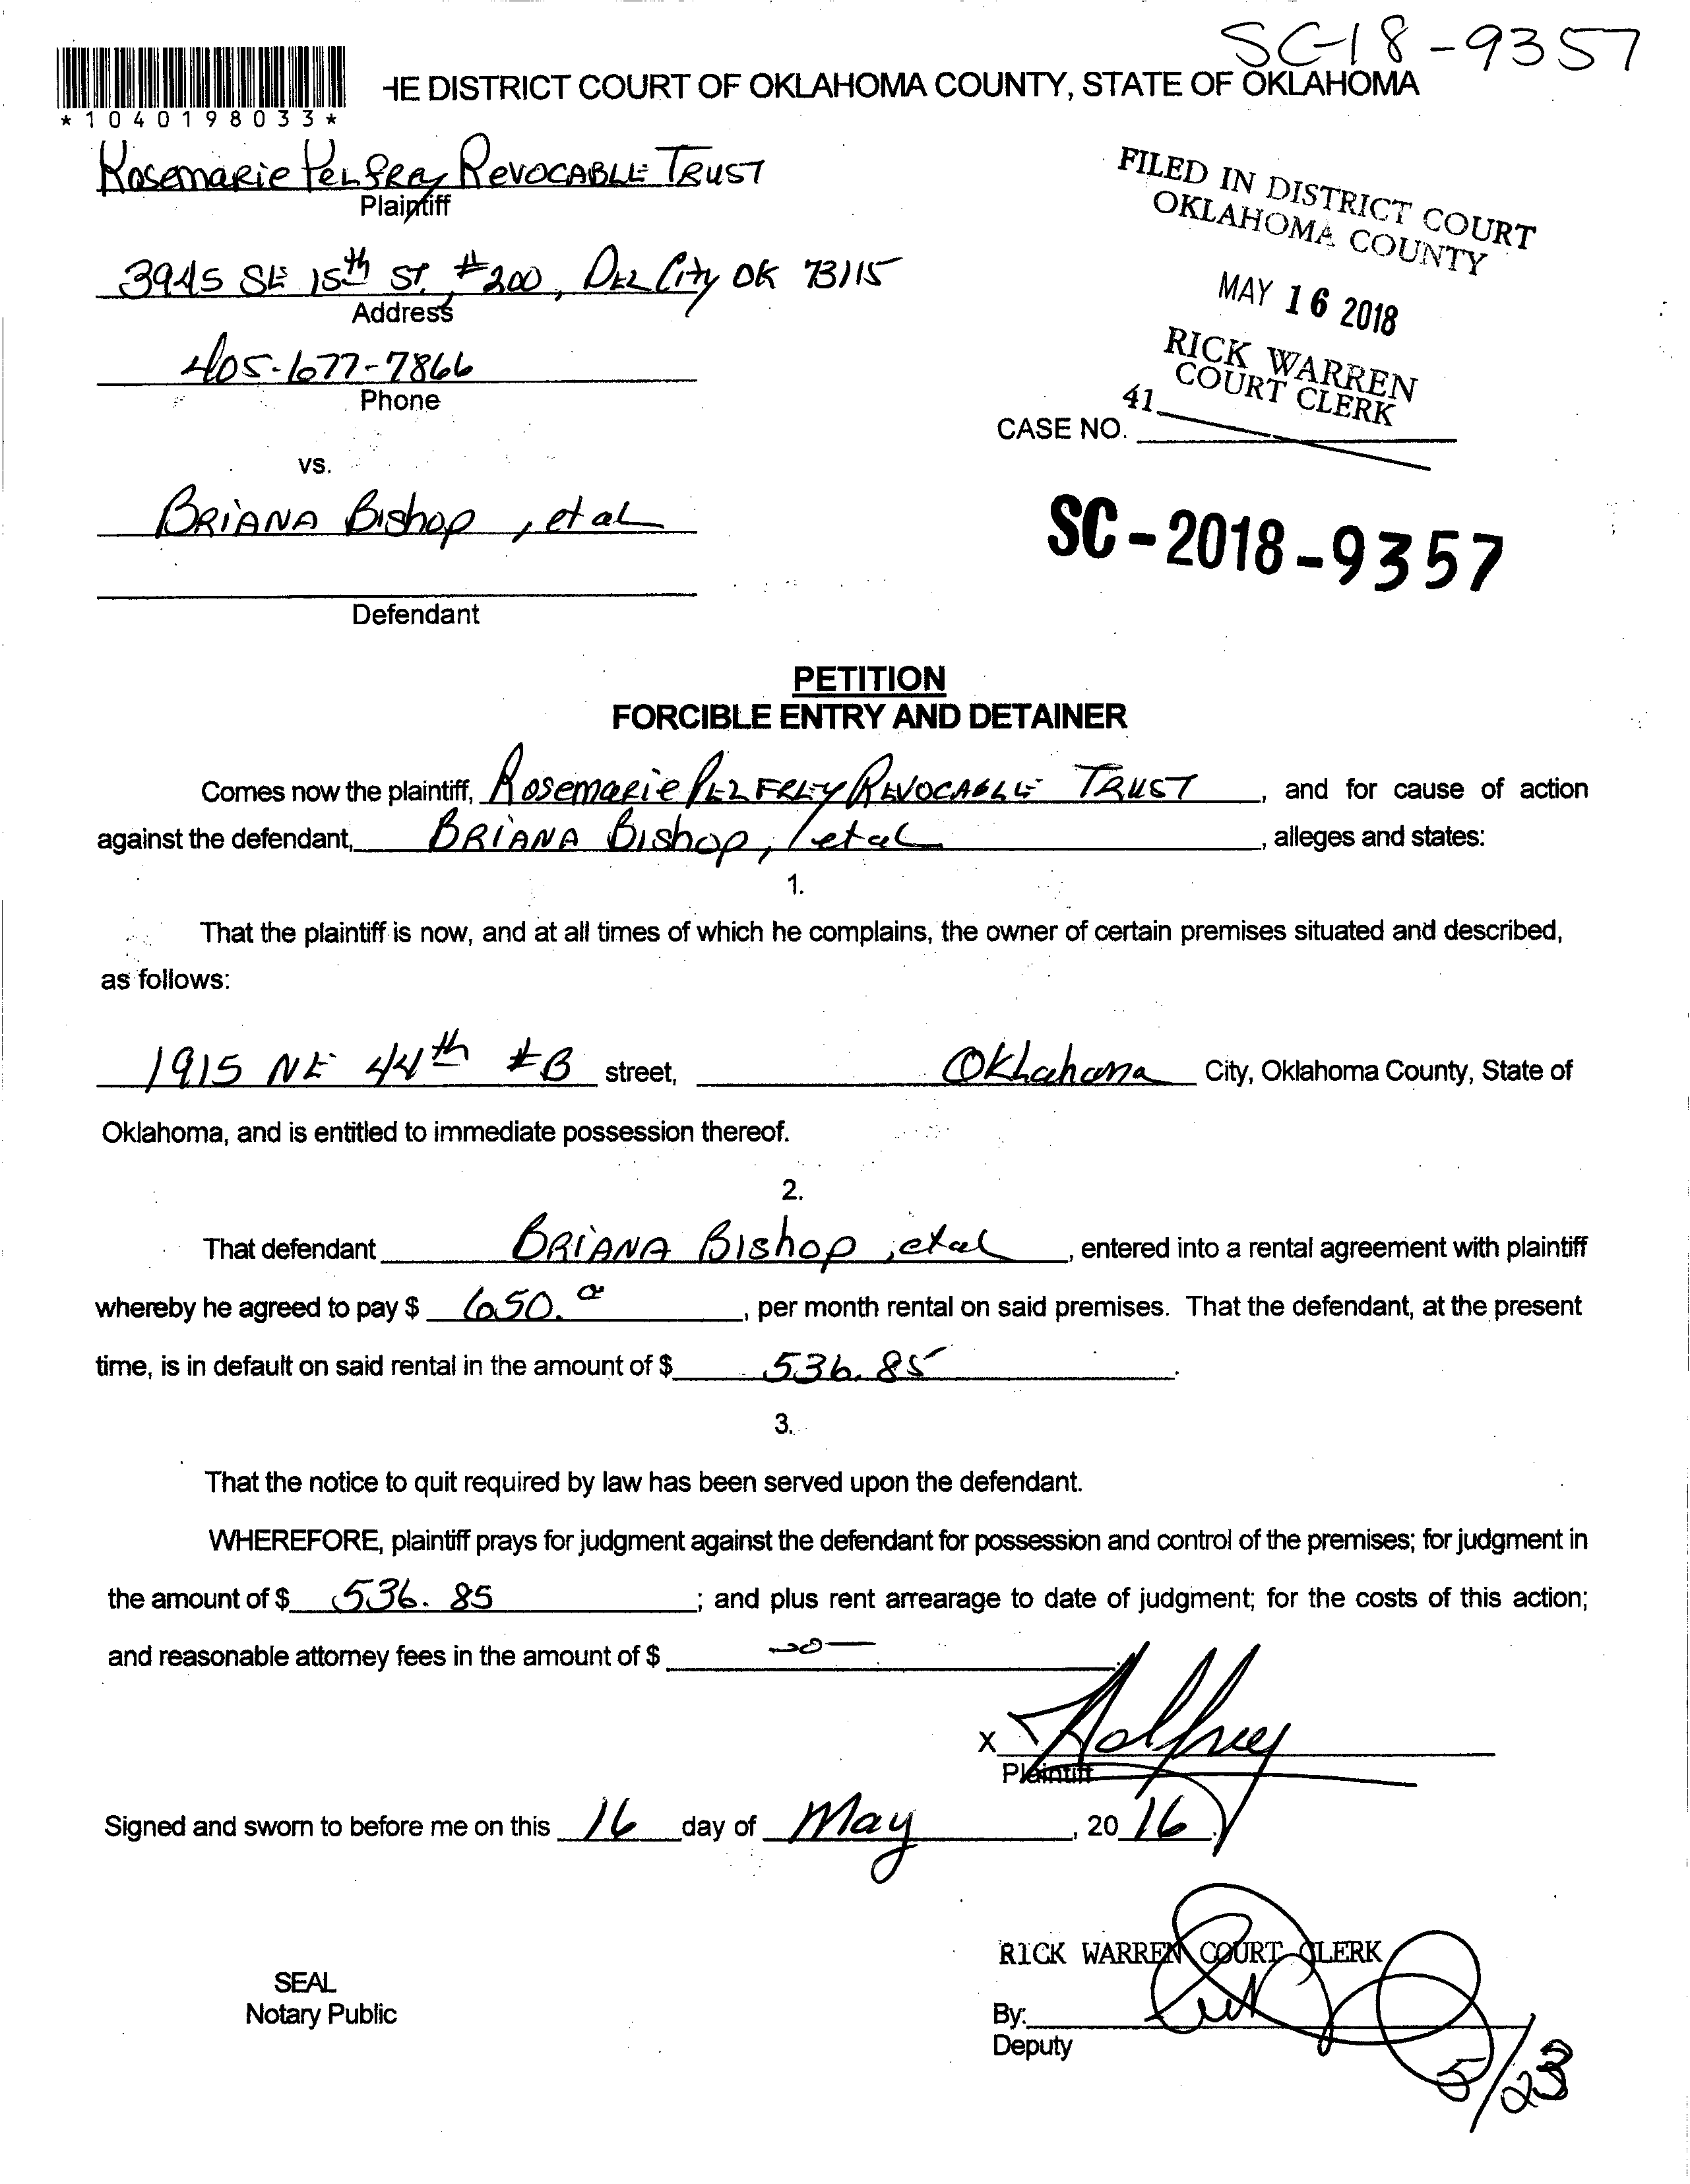 SC-18-9357
HE DISTRICT COURT OF OKLAHOMA COUNTY, STATE OF OKLAHOMA
*1040198033*
Rosemarie Pelfrey Revocable Trust
Plaintiff
3945 SE 15th St. #200, Del City OK 73115
Address
405-677-7866
Phone
FILED IN DISTRICT COURT
OKLAHOMA COUNTY
MAY 16 2018
RICK WARREN
COURT CLERK
41
CASE NO.
vs.
Briana Bishop, et al
SC-2018-9357
Defendant
PETITION
FORCIBLE ENTRY AND DETAINER
Comes now the plaintiff, Rosemarie Pelfrey Revocable Trust, and for cause of action
against the defendant, Briana Bishop, et al, alleges and states:
1.
That the plaintiff is now, and at all times of which he complains, the owner of certain premises situated and described,
as follows:
1915 NE 44th #B street, Oklahoma City, Oklahoma County, State of
Oklahoma, and is entitled to immediate possession thereof.
2.
That defendant Briana Bishop, et al, entered into a rental agreement with plaintiff
whereby he agreed to pay $ 650.00, per month rental on said premises. That the defendant, at the present
time, is in default on said rental in the amount of $ 536.85.
3.
That the notice to quit required by law has been served upon the defendant.
WHEREFORE, plaintiff prays for judgment against the defendant for possession and control of the premises; for judgment in
the amount of $ 536.85; and plus rent arrearage to date of judgment; for the costs of this action;
and reasonable attorney fees in the amount of $ -0-
X Pelfrey
Plaintiff
Signed and sworn to before me on this 16 day of May, 2016.
RICK WARREN COURT CLERK
SEAL
Notary Public
By:
Deputy
5/23